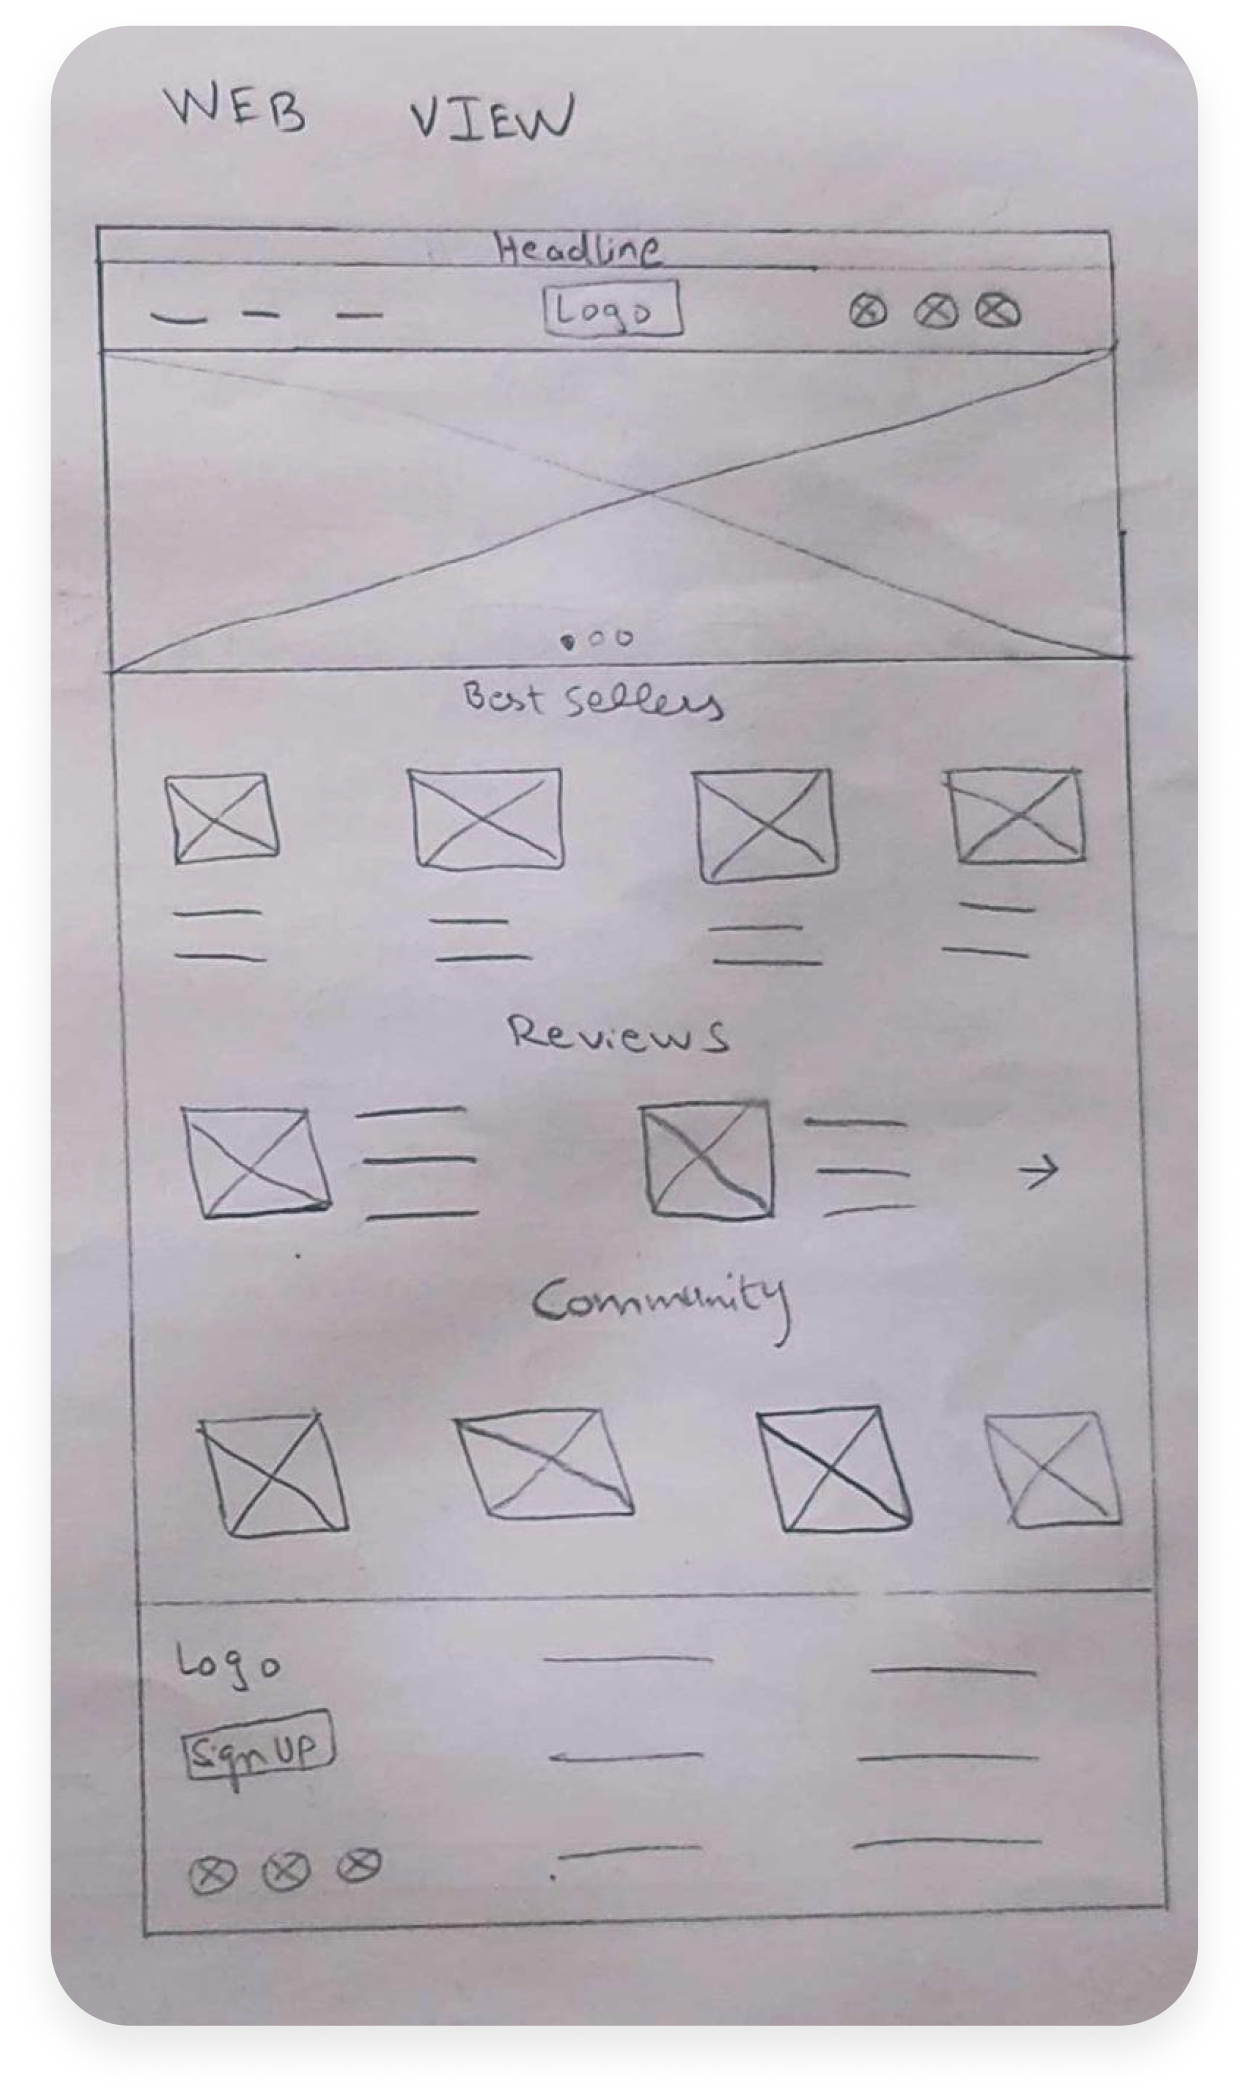 WEB VIEW
Headline
Logo
Best Sellers
Reviews
Community
Logo
Sign UP